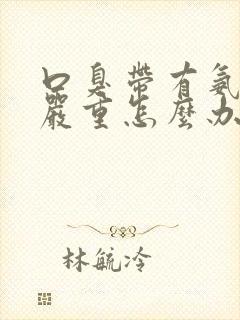 口臭帶有氨
嚴重怎麼办
林毓冷